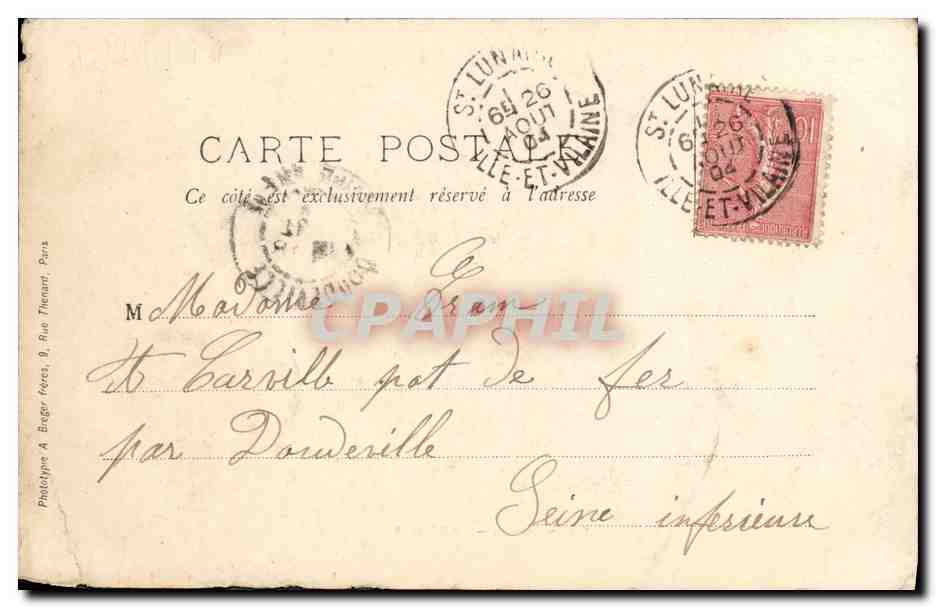 ST LUNAIRE
6E 26
AOUT
04
ILLE-ET-VILAINE
ST LUNAIRE
6E 26
AOUT
04
ILLE-ET-VILAINE
10
CARTE POSTALE
Ce côté est exclusivement réservé à l'adresse
DOUDEVILLE
M Madame Fram
At Carville pot de fer
par Doudeville
Seine inferieure
CPAPHIL
Phototypie A Breger frères, 9, Rue Thenard, Paris